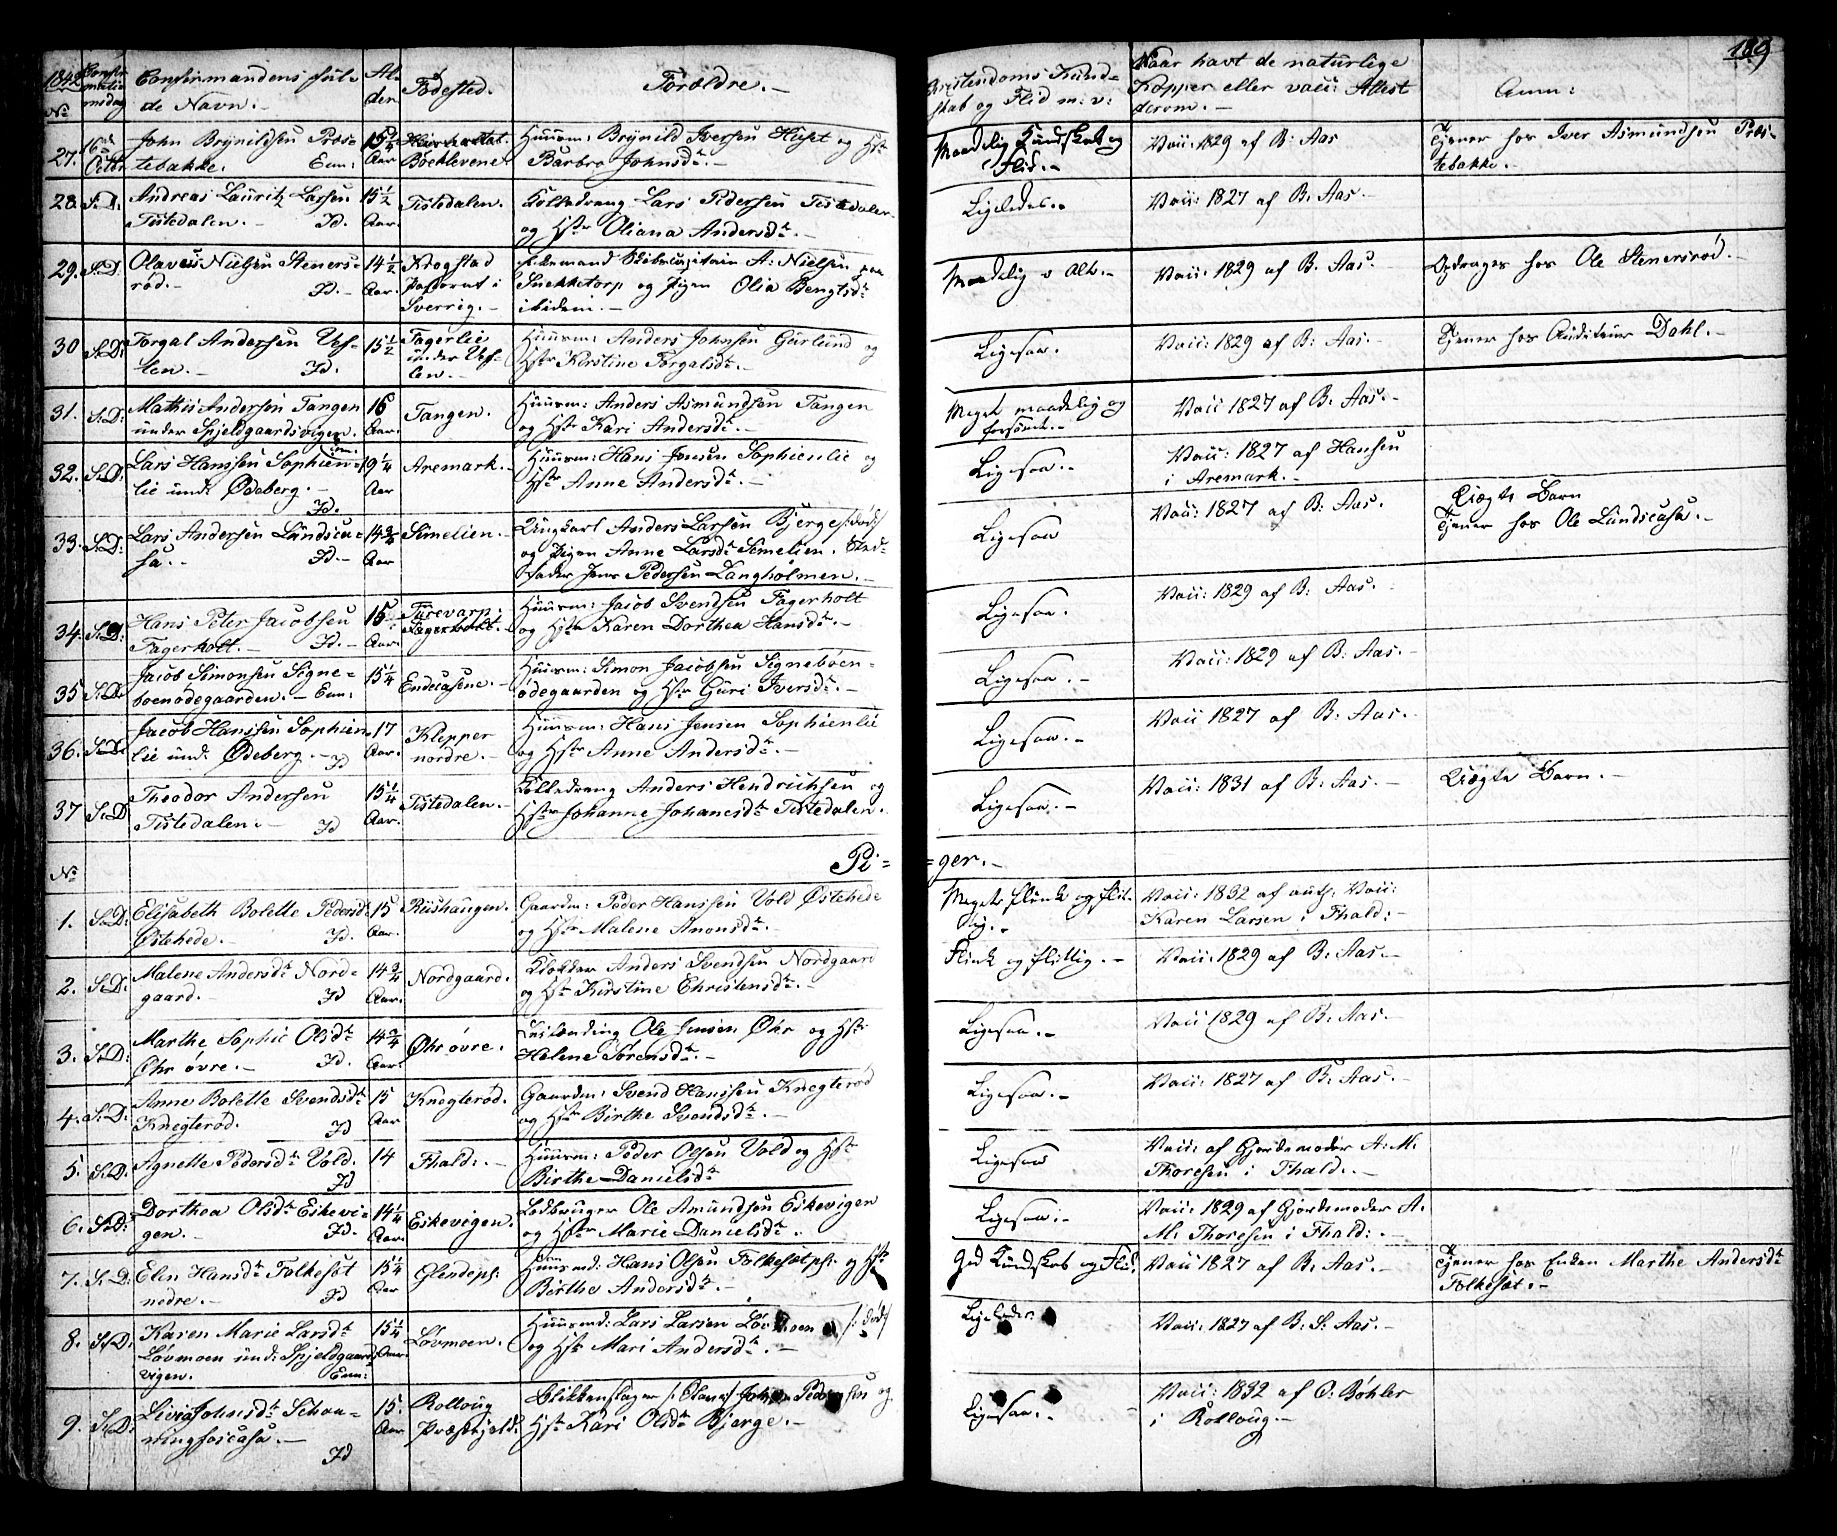 189
1842 Confirmationsdag Confirmandens fulde Navn. Alder Födested. Forældre. Christendoms Kundskab og Flid m: v: Naar havt de naturlige Kopper eller vacc: Attest derom. Anm:
No
27. 16de Octbr John Brynildsen Præstebakke. Enn: 15 1/4 Aar Bocklevene Huusm: Brynild Iversen Huset og Hst Barbro Johnsdt. Maadelig Kundskab og Flid. Vacc: 1829 af B: Aas Tjener hos Iver Asmundsen Præstebakke.
28. S.D: Andreas Lauritz Larsen Tistedalen. Id. 15 1/2 Aar. Tistedalen. Lars Pedersen Tistedalen og Hstr Oliana Andersdt. Ligeledes. Vacc: 1827 af B: Aas.
29. S.D. Olaves Nielsen Stenersrød. Id. 14 1/2 Aar. Krogstad Pastorat i Sverrig. A: Nielsen paa Snekketorp og Pigen Olia Bengtsdt ibidem. Maadelig i Alt. Vacc: 1829 af B. Aas. Opdrages hos Ole Stenersrød.
30 S.D: Torgal Andersen Veslen. Id. 15 1/2 Fagerlie under Veslen. Huusm: Anders Johnsen Gurlund og Hstr Kirstine Torgalsdt. Ligesaa. Vacc: 1829 af B: Aas. Tjener hos Auditeur Dahl.
31. S.D: Mathis Andersen Tangen under Spjeldgaardsvigen. 16 Aar. Tangen. Huusm: Anders Asmundsen Tangen og Hstr Kari Andersdt. Meget maadelig og forsömt. Vacc 1827 af B. Aas.
32. S.D: Lars Hanssen Sophienlie und: Ødeberg. Id. 19 1/4 Aar Aremark. Huusm: Hans Jensen Sophienlie og Hstr Anne Andersdt. Ligesaa. Vacc: 1827 af Hansen i Aremark.
33. S.D: Lars Andersen Lundscasa. Id. 14 3/4 Aar Simelien. Ungkarl Anders Larsen Bjerge /:död:/ og Pigen Anne Larsdt Simelien. Stedfader Jens Pedersen Langholmen. Ligesaa Vacc: 1827 af B: Aas. Uægte Barn Tjener hos Ole Lundscasa.
34. S.D: Hans Peter Jacobsen Fagerholt. Id. 15 Aar. Turevarp: Fagerholt. Huusm: Jacob Svendsen Fagerholt og Hstr Karen Dorthea Hansdt. Ligesaa. Vacc: 1829 af B: Aas.
35 S.D. Jacob Simonsen Signeboenødegaarden. Enn: 15 1/4 Endecasene. Huusm: Simon Jacobsen Signeböenödegaarden og Hstr Guri Iversdt. Ligesaa. Vacc: 1829 af B: Aas.
36. S.D. Jacob Hanssen Sophienlie und. Ødeberg. Id 17 Aar. Klepper nordre. Huusm: Hans Jensen Sophienlie og Hstr Anne Andersdt. Ligesaa. Vacc 1827 af B: Aas.
37 S.D Theodor Andersen Tistedalen. Id 15 1/4 Aar. Tistedalen. Anders Hendrichsen og Hstr Johanne Johanesdt Tistedalen. Ligesaa. Vacc: 1831 af B: Aas. Uægte Barn.
No Pi= =ger.
1. S.D: Elisabeth Bolette Pedersdt Østehede. Id. 15 Aar. Riishaugen. Gaardm: Peder Hanssen Vold Østehede og Hstr Malene Anonsdt. Meget flink og flittig. Vacc: 1832 af auth: Vacc: Karen Larsen i Fhald:
2. S.D: Malene Andersdt Nordgaard. Id 14 3/4 Aar. Nordgaard. Klokker Anders Svendsen Nordgaard og Hstr Kirstine Christensdt. Flink og flittig. Vacc: 1829 af B. Aas.
3. S.D: Marthe Sophie Olsdt Øhr övre. Id. 14 3/4 Aar. Øhr övre. Ole Jensen Øhr og Hstr Helene Sörensdt. Ligesaa. Vacc 1829 af B. Aas.
4. S.D: Anne Bolette Svendsdt Knegterød. Id 15 Aar Knegterød. Gaardm: Svend Hanssen Knegteröd og Hstr Birthe Svendsdt. Ligesaa. Vacc: 1827 af B. Aas.
5. S.D: Agnette Pedersdt Vold. Id 14 Fhald: Huusm: Peder Olsen Vold og Hstr Birthe Danielsdt Ligesaa Vacc: af Gjordemoder A: M: Thoresen i Fhald:
6. S.D: Dorthea Olsdt Eskevigen. Id. 14 1/4 Aar. Eskevigen. Lodbruger Ole Amundsen Eskevigen og Hstr Marie Danielsdt. Ligesaa. Vacc: 1829 af Gjordemoder A. M: Thoresen i Fhald:
7. S.D. Elen Hansdt Folkesøt nedre. Id 15 1/4 Aar Glendeps: Huusmd: Hans Olsen Folkesøtps: og Hstr Birthe Andersdt. God Kundskab og Flid. Vacc 1827 af B: Aas. Tjener hos Enken Marthe Andersdt Folkesöt.
8. S.D: Karen Marie Larsdt Lövmoen und: Spjeldgaardsvigen. Enn: 15 1/4 Aar. Lövmoen. Huusmd: Lars Larsen Lövmoen /:död:/ og Hstr Mari Andersdt. Ligeledes Vacc: 1827 af B. S: Aas.
9. S.D: Livia Johnsdt Schonningsfoscasa. Id 15. Aar Rolloug Præstegjeld: Blikkenslager Pedersen og Hstr Kari Olsdt Bjerge. Ligesaa. Vacc: 1832 af O: Böhler i Rolloug.